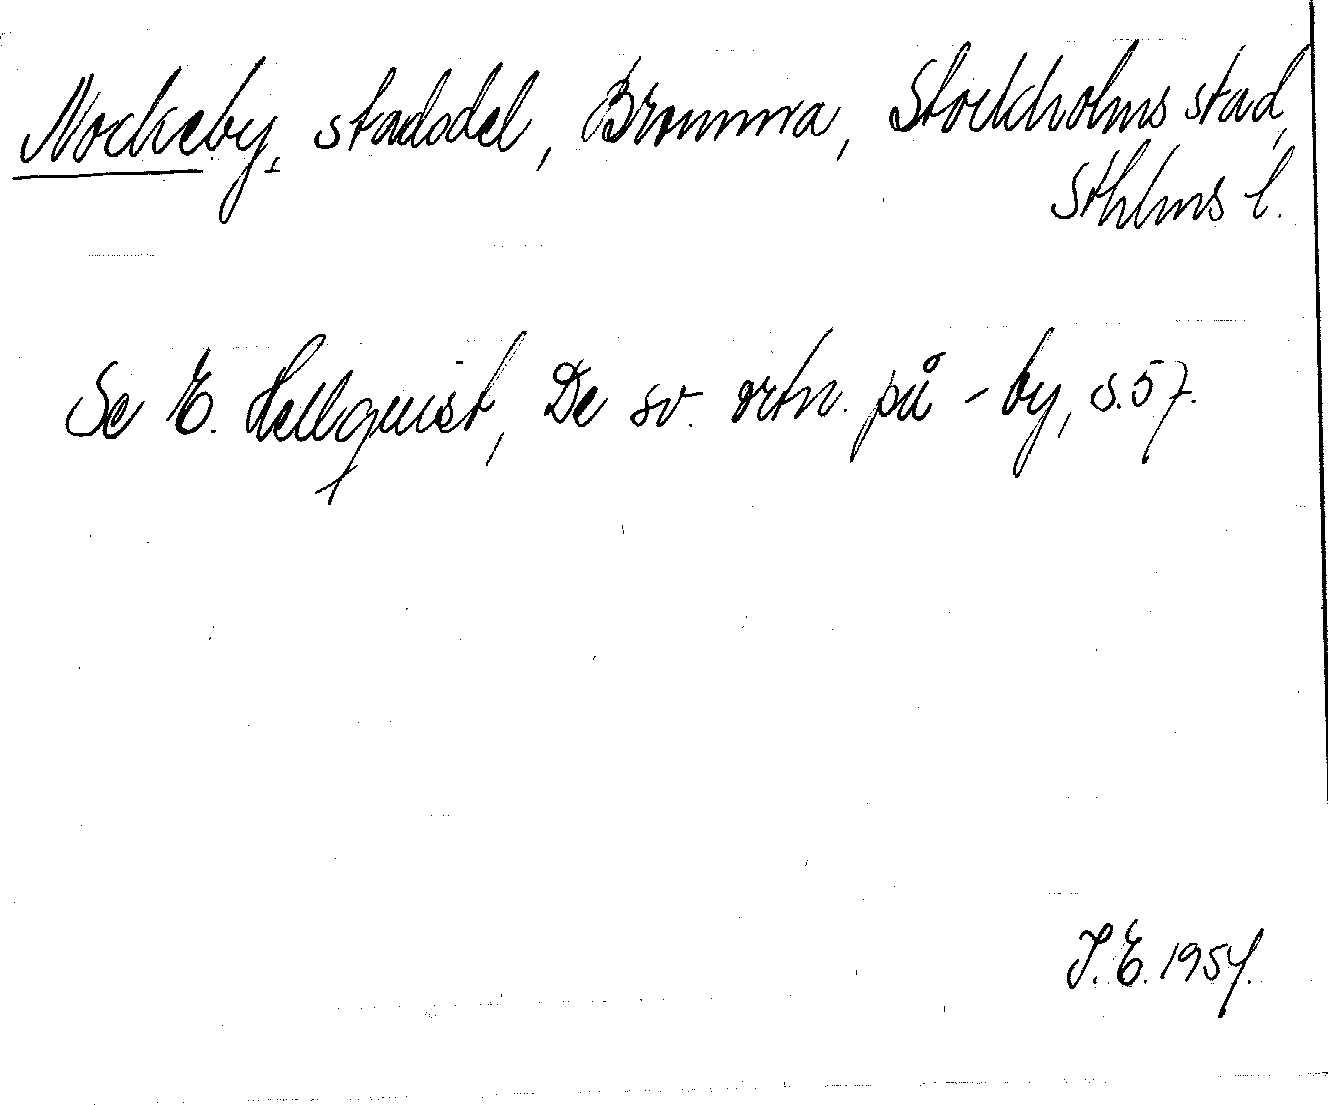 Nockeby, stadsdel, Bromma, Stockholms stad,
Sthlms l.
Se E. Hellquist, De sv. ortn. på -by, s. 57.
J. E. 1954.